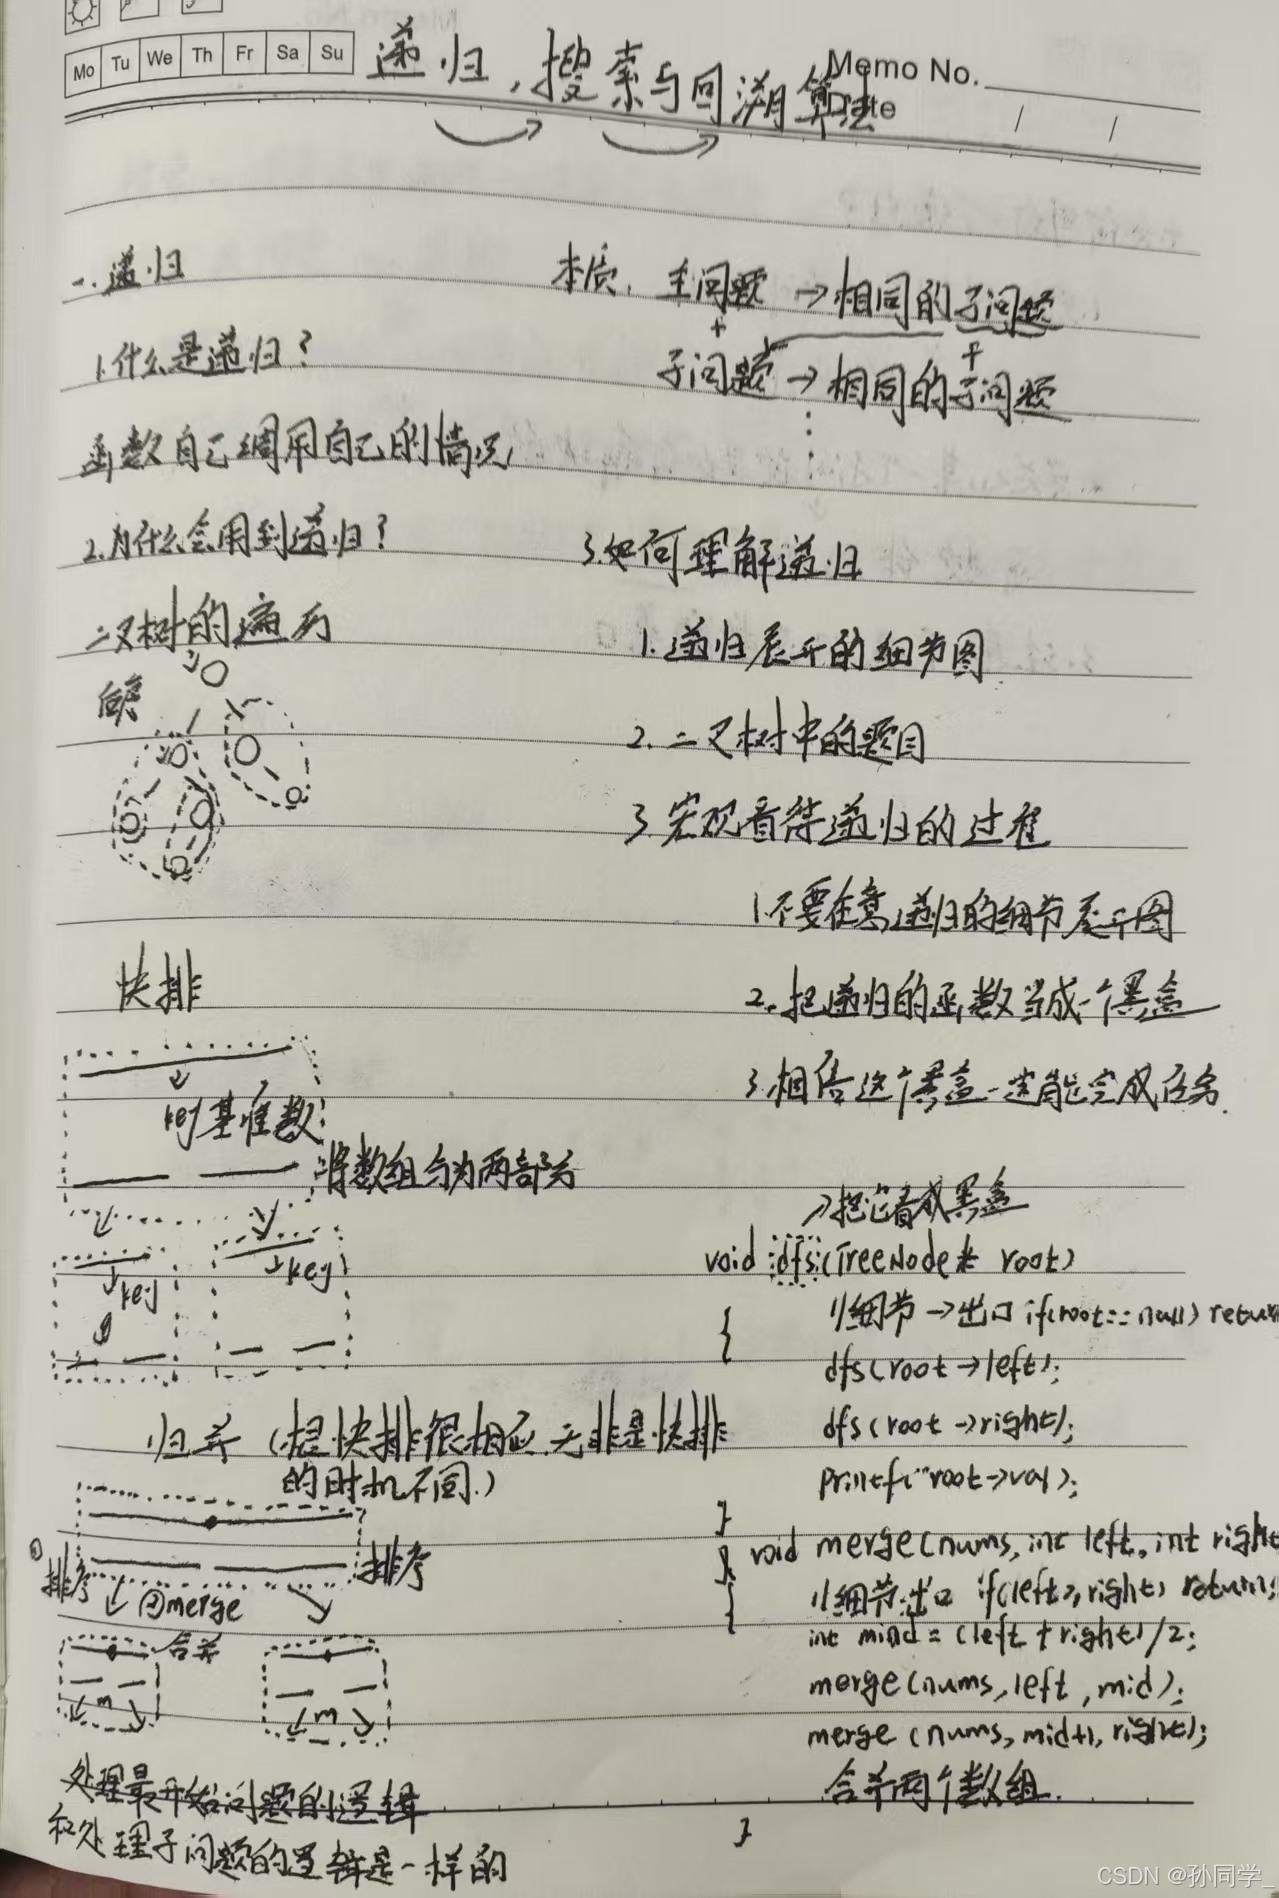 Mo Tu We Th Fr Sa Su
Memo No.
Date
递归,搜索与回溯算法
一.递归
1.什么是递归?
函数自己调用自己的情况
2.为什么会用到递归?
二叉树的遍历
后序
快排
key基准数
将数组分为两部分
key
key
归并(跟快排很相似,无非是快排
的时机不同.)
①
排序
排序
②merge
合并
m
m
处理最开始问题的逻辑
和处理子问题的逻辑是一样的
本质. 主问题 → 相同的子问题
+
+
子问题 → 相同的子问题
3.如何理解递归
1.递归展开的细节图
2.二叉树中的题目
3.宏观看待递归的过程
1.不要在意递归的细节展开图
2.把递归的函数当成一个黑盒
3.相信这个黑盒一定能完成任务.
把它看成黑盒
void dfs(TreeNode* root)
{
//细节→出口 if(root==null) return
dfs(root→left);
dfs(root→right);
printf("root→val);
}
void merge(nums, int left, int right
{
//细节:出口 if(left>,right) return;
int mind = (left + right)/2;
merge(nums, left, mid);
merge(nums, mid+1, right);
合并两个数组.
}
CSDN @孙同学_